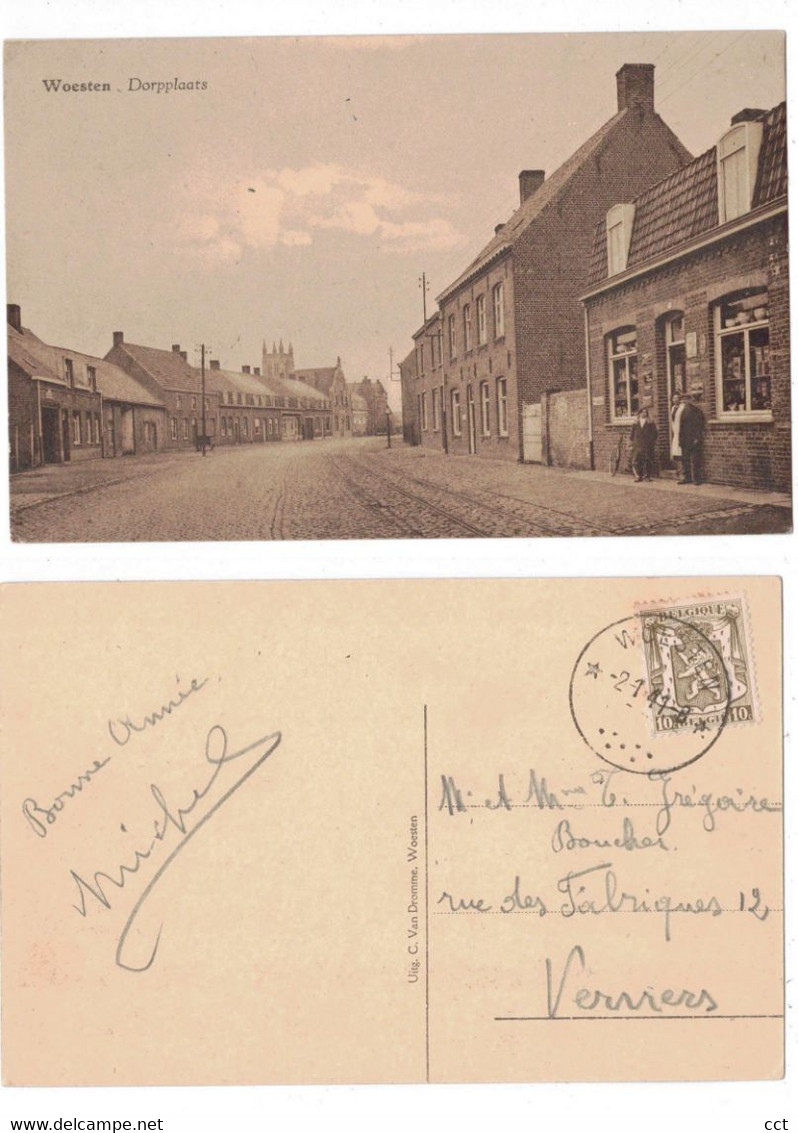 Woesten Dorpplaats
Bonne Année
Michel
Uitg. C. Van Dromme, Woesten
WOESTEN
-2-1-41-8
BELGIQUE
10 BELGIE 10
Mr et Mme T. Grégoire
Boucher
rue des Fabriques 12
Verviers
www.delcampe.net
cct